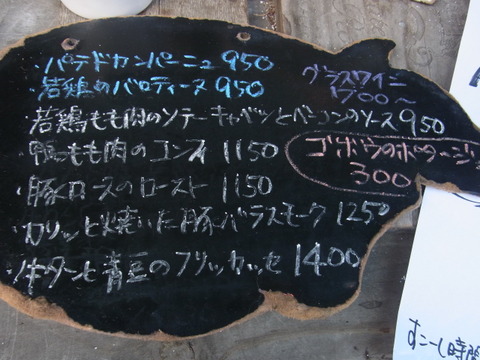 ・パテドカンパーニュ 950
・若鶏のバロティーヌ 950
グラスワイン
700～
・若鶏もも肉のソテーキャベツとベーコンのソース 950
・鴨もも肉のコンフィ 1150
ゴボウのポタージュ
300
・豚ロースのロースト 1150
・カリッと焼いた豚バラスモーク 1250
・ホタテと青豆のフリカッセ 1400
すこーし時間